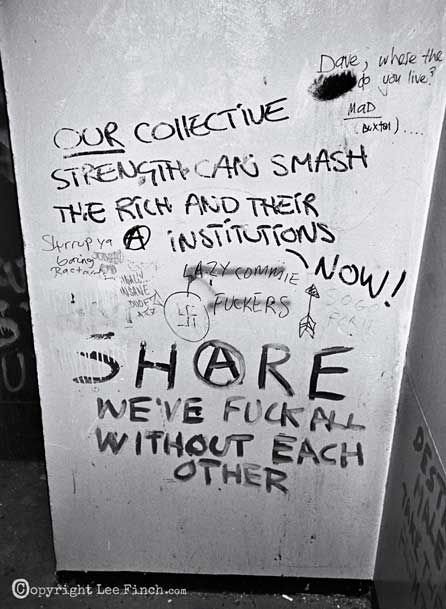 Dave, where the
do you live?
MAD
(Buxton)....
OUR COllECTIVE
STRENGTH CAN SMASH
THE RICH AND THEIR
INSTITUTIONS
NOW!
Shrrup ya
boring
LAZY COMMIE
FUCKERS
INSANE
SHARE
WE'VE FUCK ALL
WITHOUT EACH
OTHER
Copyright Lee Finch.com